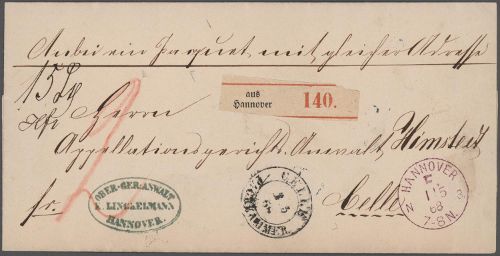 Anbei ein Paquet mit gleicher Adresse
15 L
Herrn
aus
Hannover
140.
Appellationsgerichts Anwalt Himstedt
Celle
fr.
OBER-GER:ANWALT
LINCKELMANN
HANNOVER.
CELLE
HANNOVER
1 5
68
7-8 N.